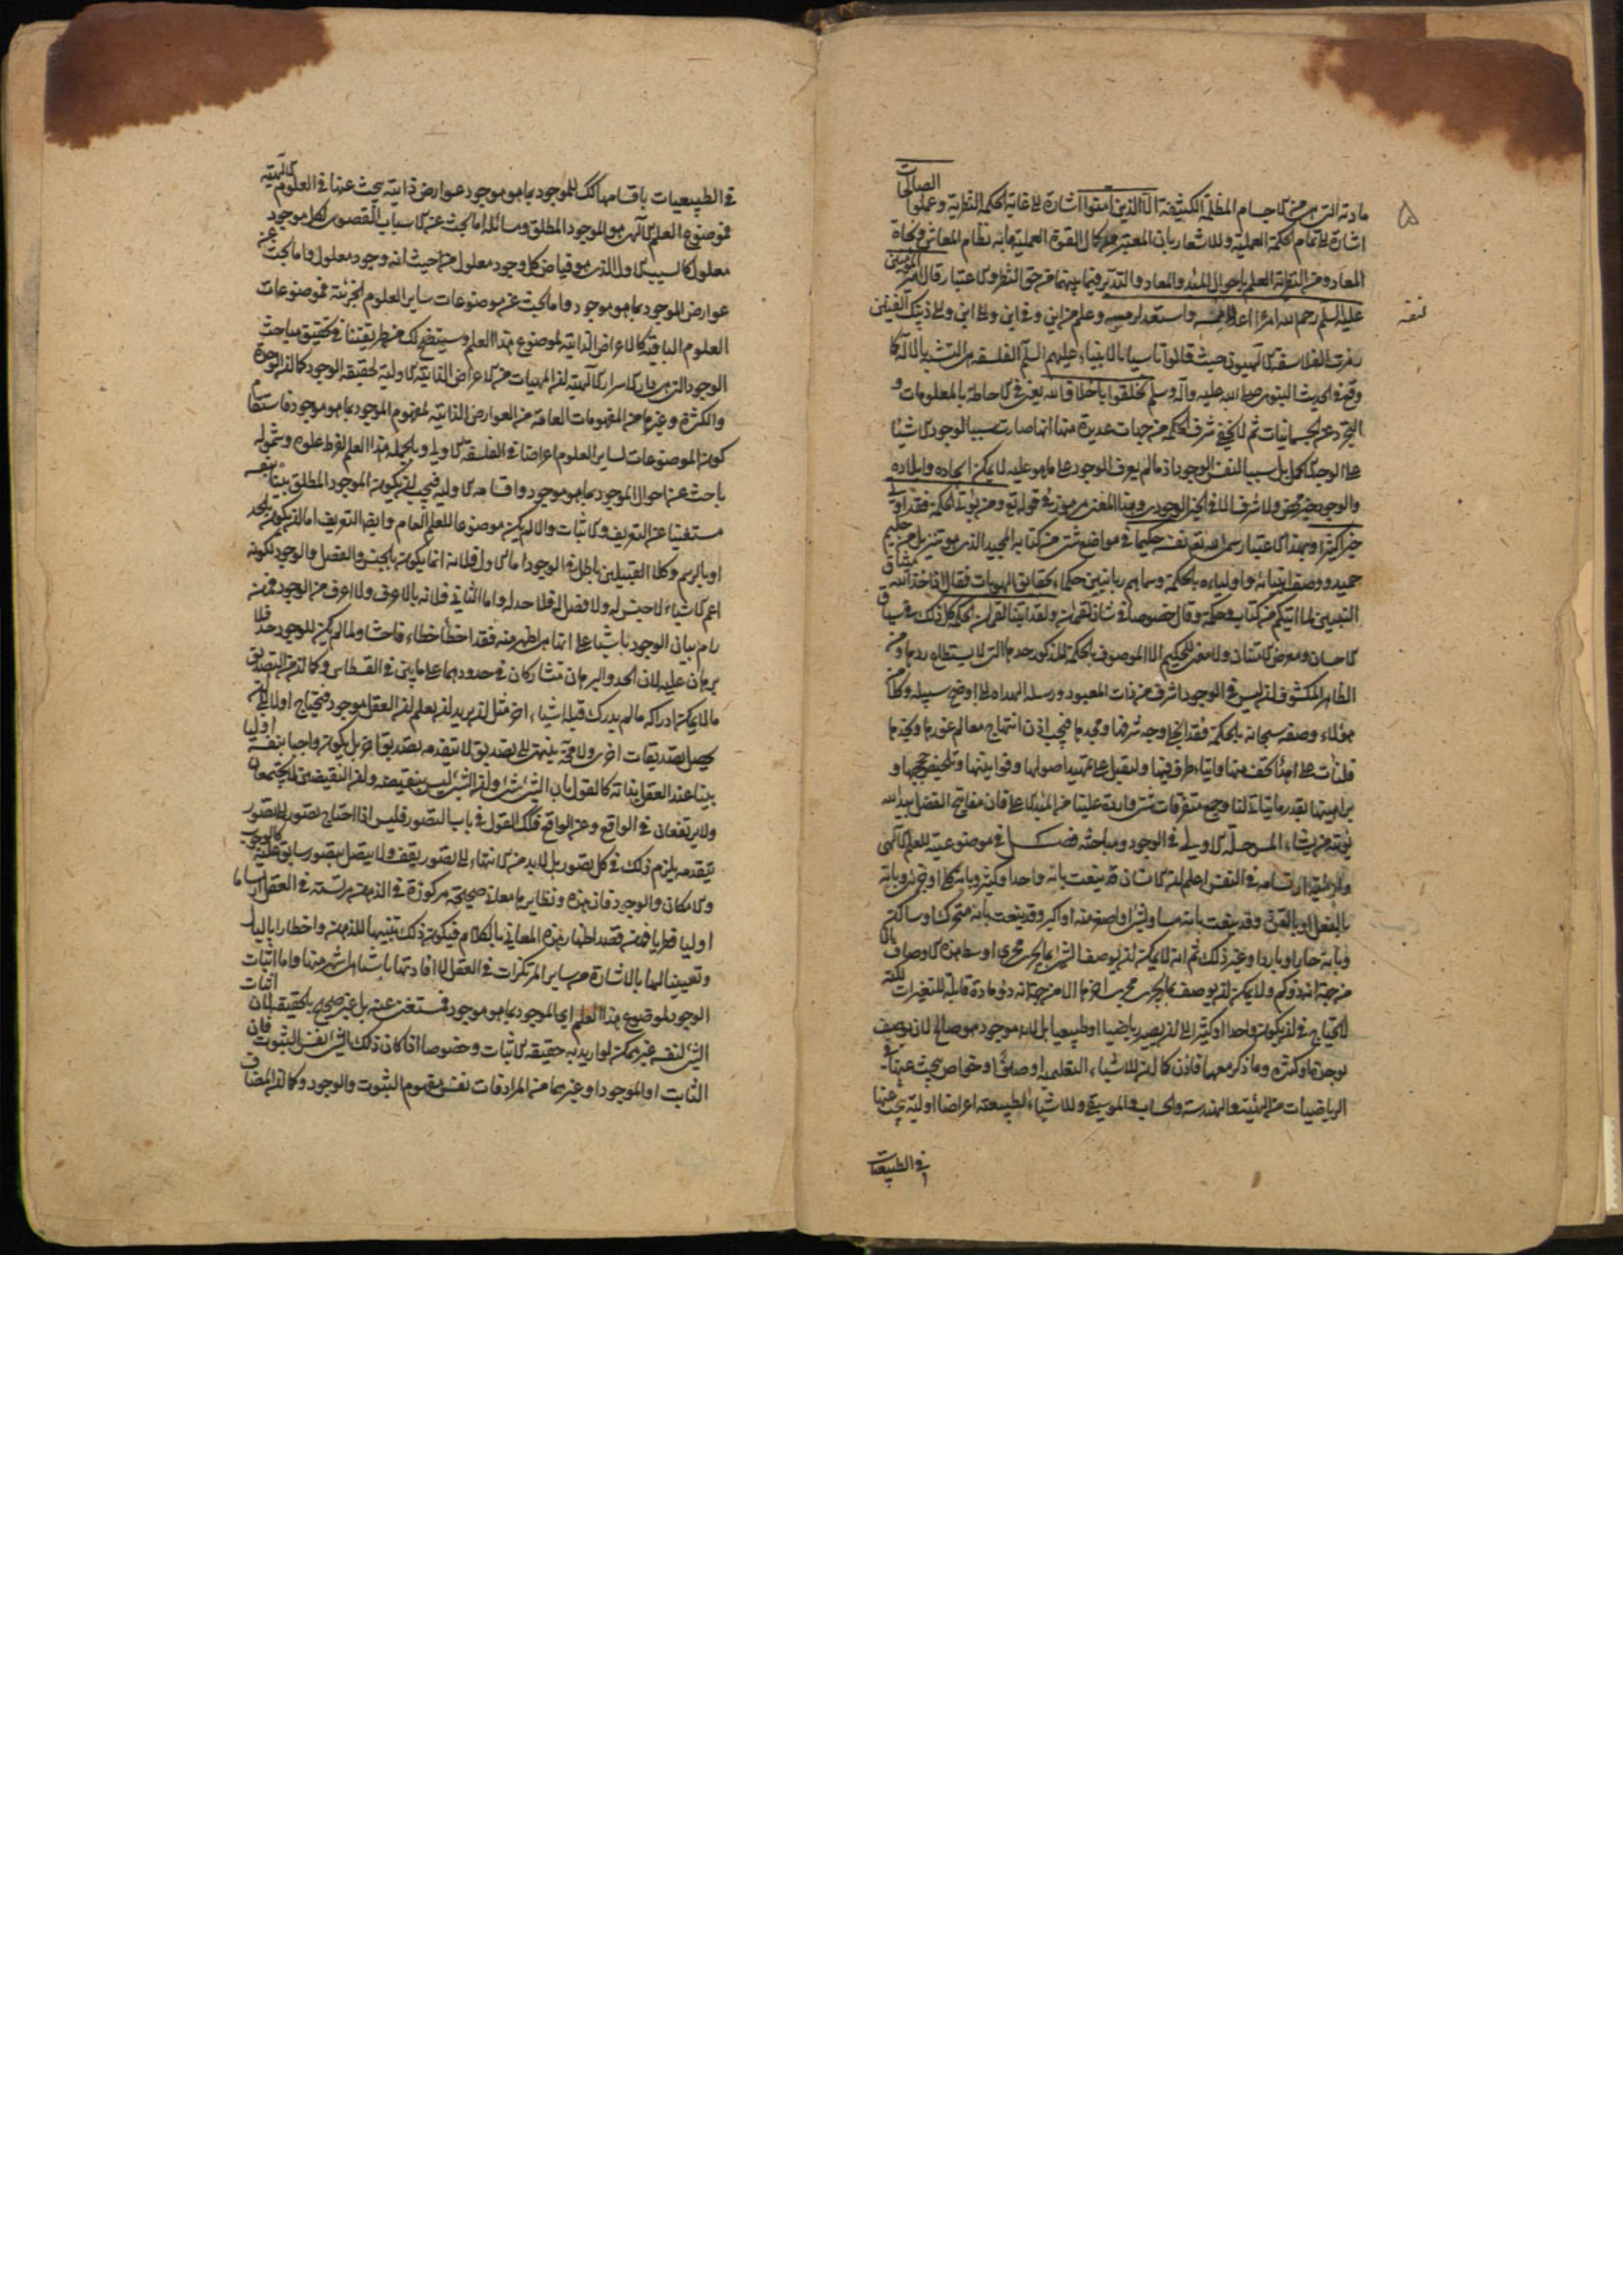 ۵
مادته التی هی من الاجسام المظلمة الکثیفة الا الذین آمنوا اشارة الی غایة الحکمة النظریة و عملوا الصالحات
اشارة الی تمام الحکمة العملیة و للاشعار بان المعتبر من کمال القوة العملیة ما به نظام المعاش و نجاة
المعاد و من النظریة العلم باحوال المبدء و المعاد و التدبر فیما بینهما من حق النظر و الاعتبار قال امیر المؤمنین
علیه السلم رحم الله امرءا اعد لنفسه و استعد لرمسه و علم من این و فی این و الی این و الی ذینک الفنین
رمزت الفلاسفة الالهیون حیث قالوا تاسیا بالانبیاء علیهم السلم الفلسفة هی التشبه بالاله کما
وقع فی الحدیث النبوی صلی الله علیه و آله و سلم تخلقوا باخلاق الله یعنی فی الاحاطة بالمعلومات و
التجرد عن الجسمانیات ثم لا یخفی شرف الحکمة من جهات عدیدة منها انها صارت سببا لوجود الاشیاء
علی الوجه الاکمل بل سببا لنفس الوجود اذ ما لم یعرف الوجود علی ما هو علیه لا یمکن ایجاده و ایلاده
و الوجود خیر محض و لا شرف الا فی الخیر الوجودی و هذا المعنی مرموز فی قوله تع و من یؤت الحکمة فقد اوتی
خیرا کثیرا و بهذا الاعتبار سمی الله تع نفسه حکیما فی مواضع شتی من کتابه المجید الذی هو تنزیل من حکیم
حمید و وصف انبیائه و اولیاءه بالحکمة و سماهم ربانیین حکماء بحقائق الهویات فقال و اذ اخذ الله میثاق
النبیین لما اتیتکم من کتاب و حکمة و قال خصوصا فی شان لقمان و لقد اتینا لقمان الحکمة کل ذلک فی سیاق
الاحسان و معرض الامتنان و لا معنی للحکیم الا الموصوف بالحکمة المذکور حدها التی لا یستطاع ردها و من
الظاهر المکشوف ان لیس فی الوجود اشرف من ذات المعبود و رسله الهداة الی اوضح سبیله و کلا من
هؤلاء وصفه سبحانه بالحکمة فقد انجلی وجه شرفها و مجدها فیجب اذن انتهاج معالم غورها و نجدها
فلنات علی اهداء تحف منها و ایتاء طرف فیها و لنقبل علی تمهید اصولها و قوانینها و تلخیص حججها و
براهینها بقدر ما یتاتی لنا و جمع متفرقات شتی واردة علینا من المبدء الاعلی فان مفاتیح الفضل بید الله
یؤتیه من یشاء المرحلة الاولی فی الوجود و مباحثه فصل فی موضوعیته للعلم الالهی
و اولیة ارتسامه فی النفس اعلم ان الانسان قد ینعت بانه واحد او کثیر و بانه کلی او جزئی و بانه
بالفعل او بالقوة و قد ینعت بانه مساو لشئ او اصغر منه او اکبر و قد ینعت بانه متحرک او ساکن
و بانه حار او بارد او غیر ذلک ثم انه لا یمکن ان یوصف الشئ بما یجری مجری اوسط هذه الاوصاف الا
من جهة انه ذو کم و لا یمکن ان یوصف بما یجری مجری اخرها الا من جهة انه ذو مادة قابلة للتغیرات لکنه
لا یحتاج فی ان یکون واحدا او کثیرا الی ان یصیر ریاضیا او طبیعیا بل لانه موجود هو صالح لان یوصف
بوحدة او کثرة و ما ذکر معهما فاذن کما ان للاشیاء التعلیمیة اوصافا و خواص یبحث عنها فی
الریاضیات من الهیئة و الهندسة و الحساب و الموسیقی و للاشیاء الطبیعیة اعراضا اولیة یبحث عنها
فی الطبیعیات
فی الطبیعیات باقسامها کذلک للموجود بما هو موجود عوارض ذاتیة یبحث عنها فی العلوم الالهیة
فموضوع العلم الالهی هو الموجود المطلق و مسائله اما بحث عن الاسباب القصوی لکل موجود
معلول کالسبب الاول الذی هو فیاض کل وجود معلول من حیث انه وجود معلول و اما بحث عن
عوارض الموجود بما هو موجود و اما بحث عن موضوعات سایر العلوم الجزئیة فموضوعات
العلوم الباقیة کالاعراض الذاتیة لموضوع هذا العلم و سیتضح لک من طریقتنا فی تحقیق مباحث
الوجود التی هی دار الاسرار الالهیة ان المهیات من الاعراض الذاتیة الاولیة لحقیقة الوجود کما ان الوحدة
و الکثرة و غیرهما من المفهومات العامة من العوارض الذاتیة لمفهوم الموجود بما هو موجود فاستقام
کون الموضوعات لسایر العلوم اعراضا فی الفلسفة الاولی و بالجملة هذا العلم لفرط علوه و شموله
باحث عن احوال الموجود بما هو موجود و اقسامه الاولیة فیجب ان یکون الموجود المطلق بینا بنفسه
مستغنیا عن التعریف و الاثبات و الا لم یکن موضوعا للعلم العام و ایضا التعریف اما ان یکون بالحد
او بالرسم و کلا القبیلین باطل فی الوجود اما الاول فلانه انما یکون بالجنس و الفصل و الوجود لکونه
اعم الاشیاء لا جنس له و لا فصل له فلا حد له و اما الثانی فلانه بالاعرف و لا اعرف من الوجود فمن
رام بیان الوجود باشیاء علی انها هی اظهر منه فقد اخطأ خطاء فاحشا و لما لم یکن للوجود حد فلا
برهان علیه لان الحد و البرهان متشارکان فی حدودهما علی ما بین فی القسطاس و کما ان من التصدیق
ما لا یمکن ادراکه ما لم یدرک قبله اشیاء اخر مثل ان یرید ان یعلم ان العقل موجود فیحتاج اولا الی ان
یحصل تصدیقات اخری و لا محة ینتهی الی تصدیق لا یتقدمه تصدیق اخر بل یکون واجبا بنفسه اولیا
بینا عند العقل بذاته کالقول بان الشئ شئ و ان الشئ لیس بنقیضه و ان النقیضین لا یجتمعان
و لا یرتفعان فی الواقع و عن الواقع فکذلک القول فی باب التصور فلیس اذا احتاج تصور الی تصور
یتقدمه یلزم ذلک فی کل تصور بل لا بد من الانتهاء الی تصور یقف و لا یتصل بتصور سابق علیه کالوجوب
و الامکان و الوجود فان هذه و نظایرها معان صحیحة مرکوزة فی الذهن مرتسمة فی العقل ارتساما
اولیا فطریا فمتی قصد اظهار هذه المعانی بالکلام فیکون ذلک تنبیها للذهن و اخطارا بالبال
و تعیینا لها بالاشارة من سایر المرتکزات فی العقل لا افادتها باشیاء هی اشهر منها و اما اثبات
الوجود لموضوع هذا العلم ای الموجود بما هو موجود فمستغن عنه بل غیر صحیح بالحقیقة لان اثبات
الشئ لنفسه غیر ممکن لو ارید به حقیقة الاثبات و خصوصا اذا کان ذلک الشئ نفس الثبوت فان
الثابت او الموجود او غیرهما من المرادفات نفس مفهوم الثبوت و الوجود و کما ان المضاف